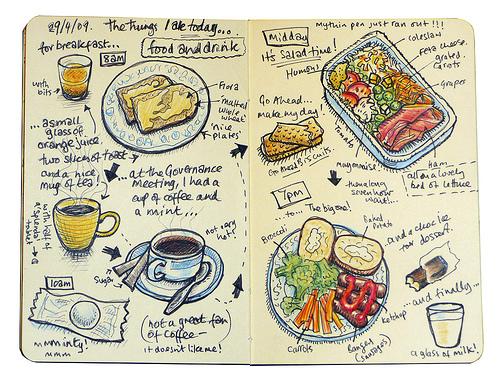 29/4/09. The things I ate today...
food and drink
for breakfast...
8am
with bits
Flora
malted whole wheat
'nice plates'
...a small
glass of
orange juice
two slices of toast
and a nice
mug of tea!
...at the Governance
meeting, I had a
cup of coffee and
a mint...
not very hot!
Sugar
10am
mmminty!
mmm
(not a great fan
of coffee -
it doesn't like me!
My thin pen just ran out!!!
midday
it's salad time!
Humous
coleslaw
feta cheese.
grated carrots
Grapes
Go Ahead...
make my day!
Go Ahead Biscuits.
Tomato
mayonnaise
Ham
all on a lovely
bed of lettuce
7pm
then a long
seven hour
wait...
...to... The big one!
Broccoli
Baked Potato
...and a choc ice
for dessert.
ketchup
carrots
(sausages)
...and finally...
a glass of milk!